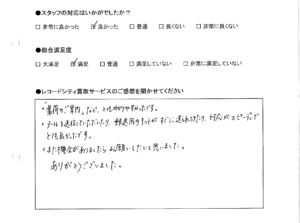 ●スタッフの対応はいかがでしたか？
□非常に良かった ☑良かった □普通 □良くない □非常に良くない
●総合満足度
□大満足 ☑満足 □普通 □満足していない □非常に満足していない
●レコードシティ買取サービスのご感想を聞かせてください
・「業務のご案内」など、とても分りやすかったです。
・メールを送信していただいたり、郵送用のキットがすぐに送られてきたり、対応がスピーディで
とても良かったです。
・また機会がありましたらお願いしたいと思いました。
ありがとうございました。